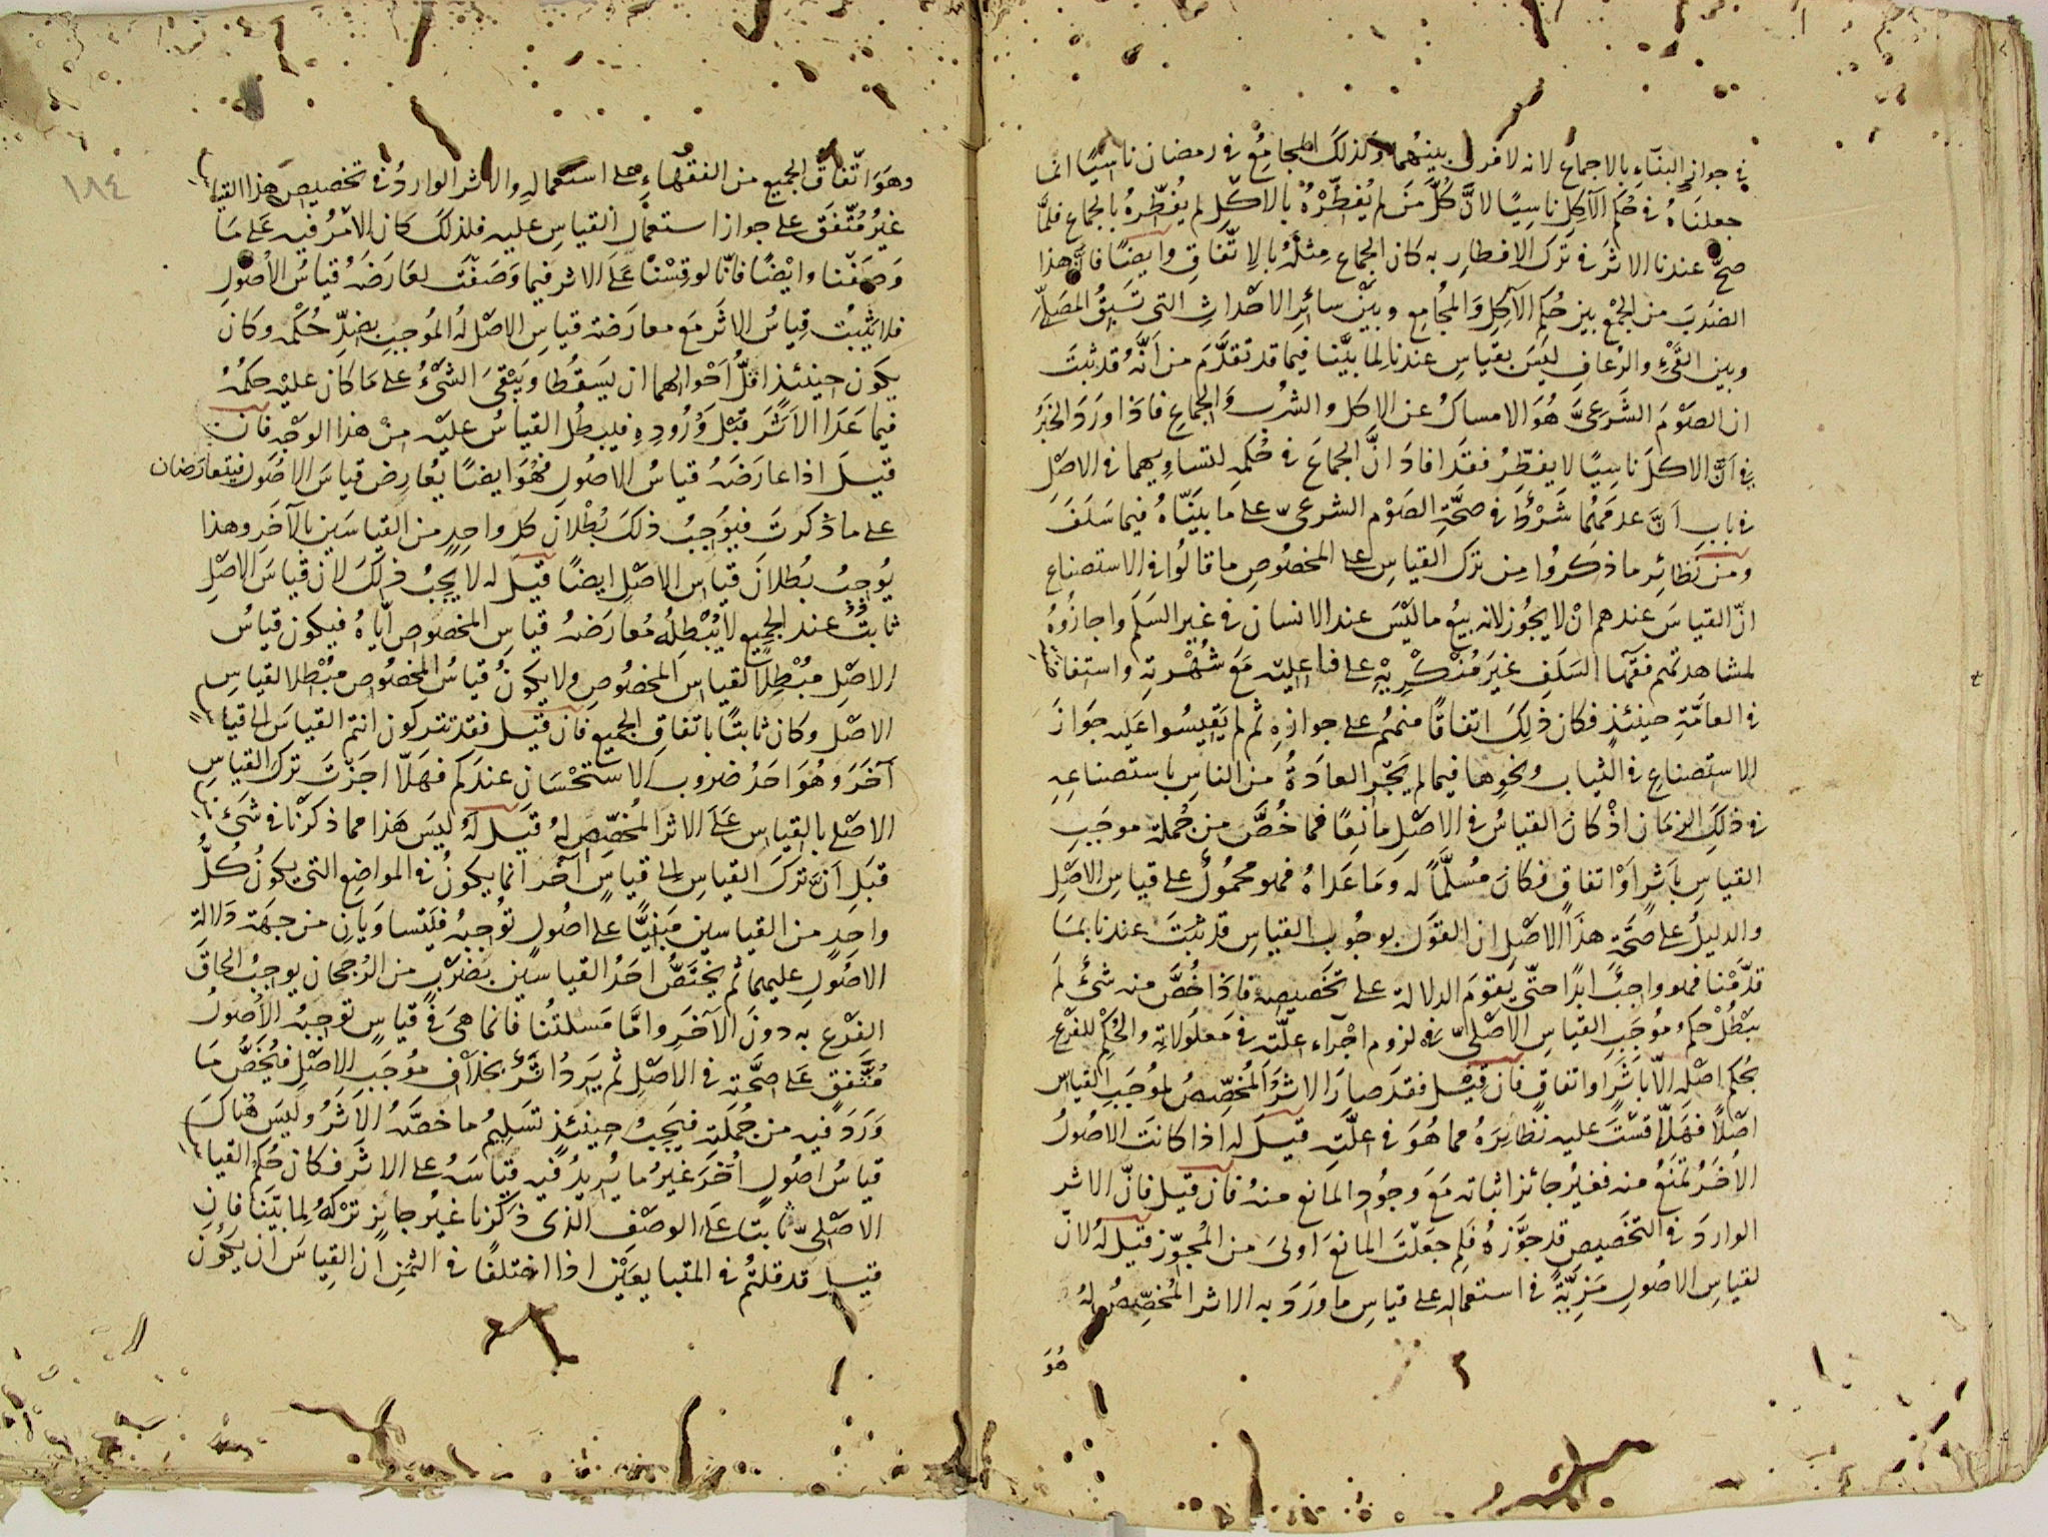 في جواز البناء بالاجماع لانه لا فرق بينهما وكذلك المجامع في رمضان ناسيًا انما
جعلناه في حكم الآكل ناسيًا لانّ كلّ مَن لم يُفطّرْهُ بالاكل لم يفطّره بالجماع فلمّا
صحّ عندنا الاثر في ترك الافطار به كان الجماع مثله بالاتّفاق وايضًا فانّ هذا
الضرب من الجمع بين حكم الآكل والمجامع وبين سائر الاحداث التي تسبق المصلّي
وبين القيء والرعاف ليس بقياس عندنا لما بيّنا فيما قد تقدّم من انّه قد ثبت
ان الصوم الشرعيّ هو الامساك عن الاكل والشرب والجماع فاذا ورد الخبر
في انّ الاكل ناسيًا لا يفطّر فقد افاد انّ الجماع في حكمه لتساويهما في الاصل
في باب انّ عدمهما شرط في صحّة الصوم الشرعيّ على ما بيّنّاه فيما سلف
ومن نظائر ما ذكروا من ترك القياس على المخصوص ما قالوا في الاستصناع
انّ القياس عندهم انْ لا يجوز لانه بيع ما ليس عند الانسان في غير السلم واجازوه
لمشاهدتهم فقهاء السلف غير مُنكريه على فاعليه مع شهرته واستفاضته
في العامّة حينئذ فكان ذلك اتفاقًا منهم على جوازه ثم لم يقيسوا عليه جواز
الاستصناع في الثياب ونحوها فيما لم يجر العادة من الناس باستصناعه
في ذلك الزمان اذْ كان القياس في الاصل مانعًا فما خُصَّ من جملة موجب
القياس باثر اوْ اتفاق فكان مسلَّمًا له وما عداه فهو محمول على قياس الاصل
والدليل على صحّة هذا الاصل ان القول بوجوب القياس قد ثبت عندنا بما
قدّمنا فهو واجب ابدًا حتّى يقوم الدلالة على تخصيصه فاذا خُصّ منه شئ لم
يبطل حكم موجب القياس الاصليّ في لزوم اجراء علّته في معلولاته والحكم للفرع
بحكم اصله الّا باثر او اتفاق فان قيل فقد صار الاثر المُخصِّص لموجب القياس
اصلًا فهلّا قست عليه نظائره مما هو في علّته قيل له اذا كانت الاصول
الاخر تمنع منه فغير جائز اثباته مع وجود المانع منه فان قيل فانّ الاثر
الوارد في التخصيص قد جوّزه فلم جعلت المانع اولى من المجوّز قيل له لانّ
لقياس الاصول مزيّة في استعماله على قياس ما ورد به الاثر المُخصِّص له
هو
١٨٤
وهو اتّفاق الجميع من الفقهاء على استعماله والاثر الوارد في تخصيص هذا القياس
غير متّفق على جواز استعمال القياس عليه فلذلك كان الامر فيه على ما
وصفنا وايضًا فانّا لو قسنا على الاثر فيما وصفت لعارضه قياس الاصول
فلا يثبت قياس الاثر مع معارضة قياس الاصل له الموجب بضدّ حكمه وكان
يكون حينئذ اقلّ احوالهما ان يسقطا ويبقى الشئ على ما كان عليه حكمه
فيما عدا الاثر قبل وروده فيبطل القياس عليه من هذا الوجه فان
قيل اذا عارضه قياس الاصول فهو ايضًا يُعارض قياس الاصول فيتعارضان
على ما ذكرت فيوجب ذلك بطلان كل واحد من القياسين بالآخر وهذا
يوجب بطلان قياس الاصل ايضًا قيل له لا يجب ذلك لان قياس الاصل
ثابت عند الجميع لا يبطله معارضة قياس المخصوص ايّاه فيكون قياس
الاصل مبطلًا لقياس المخصوص ولا يكون قياس المخصوص مبطلا لقياس
الاصل وكان ثابتًا باتفاق الجميع فان قيل فقد تتركون انتم القياس الى قياس
آخر وهو احد ضروب الاستحسان عندكم فهلّا اجزت ترك القياس
الاصلي بالقياس على الاثر المُخصِّص له قيل له ليس هذا مما ذكرنا في شئ من
قبل انّ ترك القياس الى قياس آخر انما يكون في المواضع التي يكون كلُّ
واحد من القياسين مبنيًّا على اصول توجبه فيتساويان من جهة دلالة
الاصول عليهما ثم يختصّ احد القياسين بضرب من الرجحان يوجب الحاق
الفرع به دون الآخر وامّا مسئلتنا فانما هي في قياس توجبه الاصول
متّفق على صحّته في الاصل ثم يرد اثر بخلاف موجب الاصل فيُخَصُّ ما
ورد فيه من جملته فيجب حينئذ تسليم ما خصّه الاثر وليس هناك
قياس اصول اُخر غير ما يريد فيه قياسه على الاثر فكان حكم القياس
الاصليّ ثابتًا على الوصف الذي ذكرنا غير جائز تركه لما بيّنا فان
قيل قد قلتم في المتبايعين اذا اختلفا في الثمن ان القياس ان يكون